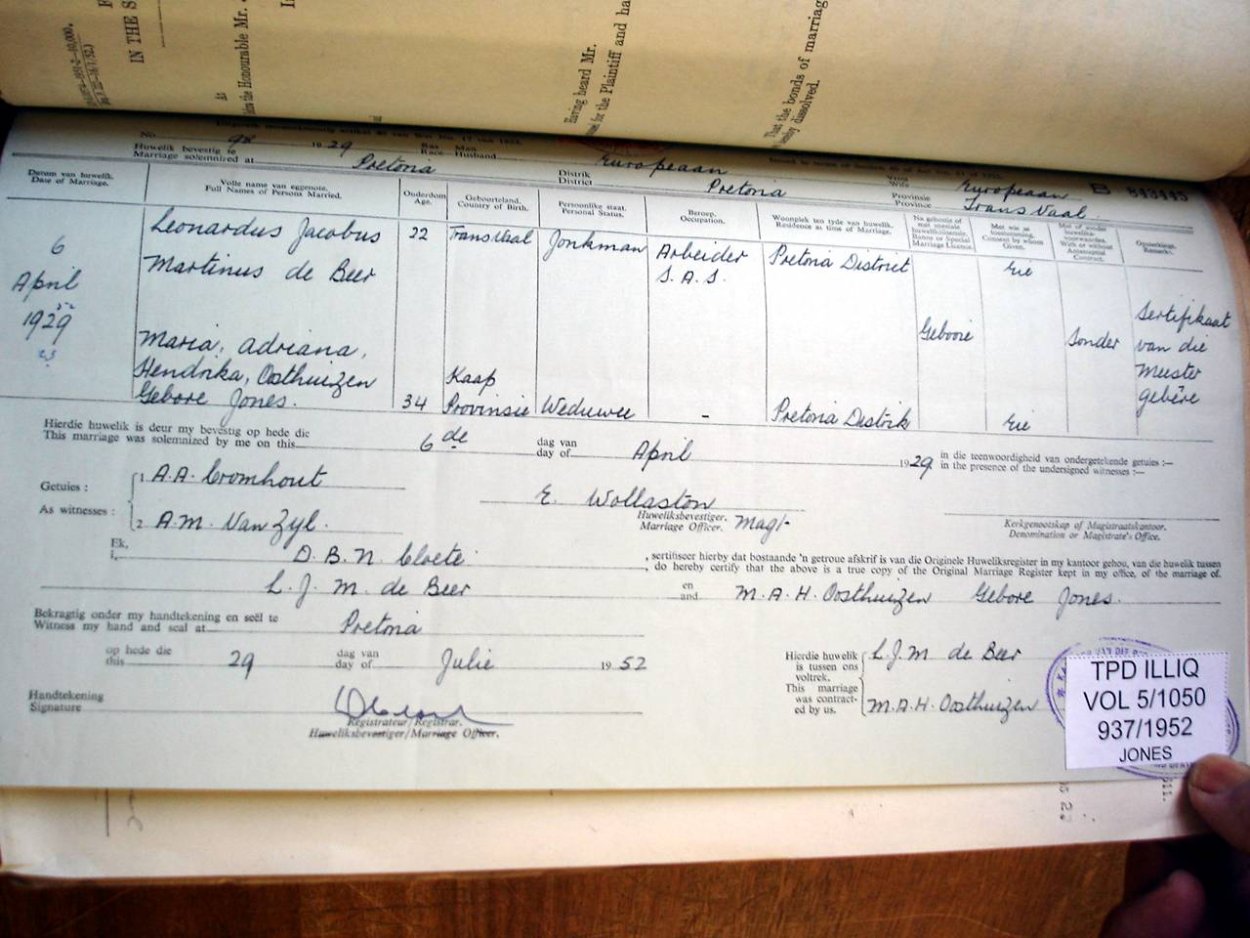 IN THE S
As
the Honourable Mr.
Having heard Mr.
for the Plaintiff and ha
That the bonds of marriag
dissolved.
No. 98 1929 Ras Race Man Husband Europeaan Vrou Wife Europeaan B 843445
Huwelik bevestig te
Marriage solemnized at Pretoria Distrik District Pretoria Provinsie Province Transvaal.
Datum van huwelik. Date of Marriage.
Volle name van eggenote. Full Names of Persons Married.
Ouderdom Age.
Geboorteland. Country of Birth.
Persoonlike staat. Personal Status.
Beroep. Occupation.
Woonplek ten tyde van huwelik. Residence at time of Marriage.
Na gebooie of met spesiale huwelikslisensie. Banns or Special Marriage Licence.
Met wie se toestemming. Consent by whom Given.
Met of sonder huweliks-voorwaardes. With or without Antenuptial Contract.
Opmerkings. Remarks.
6 April 1929
Leonardus Jacobus Martinus de Beer 22 Transvaal Jonkman Arbeider S.A.S. Pretoria District Eie
Maria, Adriana, Hendrika, Oosthuizen Gebore Jones. 34 Kaap Provinsie Weduwee - Pretoria Distrik Eie
Gebooie
Sonder
Sertifikaat van die
Hierdie huwelik is deur my bevestig op hede die
This marriage was solemnized by me on this 6de dag van day of April 1929 in die teenwoordigheid van ondergetekende getuies :—
in the presence of the undersigned witnesses :—
Getuies :
As witnesses :
1 A.A. Cromhout
2 A.M. Van Zyl.
E. Wollaston
Huweliksbevestiger.
Marriage Officer. Mag:
Kerkgenootskap of Magistraatskantoor.
Denomination or Magistrate's Office.
Ek,
I, D.B.N. Cloete , sertifiseer hierby dat bostaande 'n getroue afskrif is van die Originele Huweliksregister in my kantoor gehou, van die huwelik tussen
, do hereby certify that the above is a true copy of the Original Marriage Register kept in my office, of the marriage of.
L.J.M. de Beer en and M.A.H. Oosthuizen Gebore Jones.
Bekragtig onder my handtekening en seël te
Witness my hand and seal at Pretoria
op hede die
this 29 dag van day of Julie 1952
Hierdie huwelik is tussen ons voltrek.
This marriage was contracted by us.
L.J.M de Beer
M.A.H. Oosthuizen
Handtekening
Signature
Registrateur/Registrar.
Huweliksbevestiger/Marriage Officer.
TPD ILLIQ
VOL 5/1050
937/1952
JONES